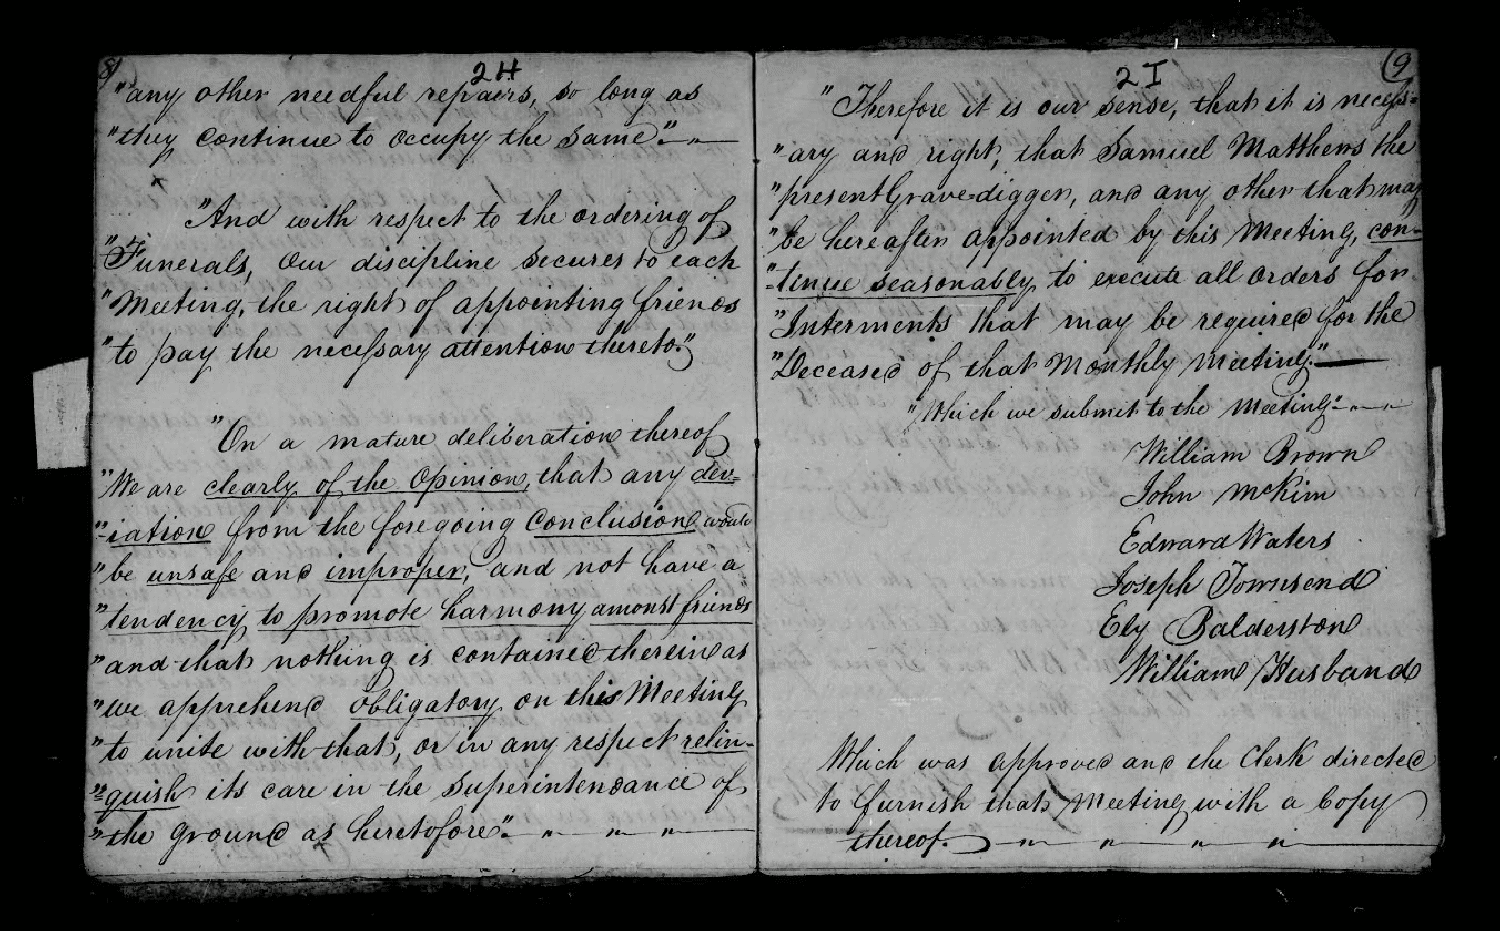 8)
2H
"any other needful repairs, so long as
"they continue to occupy the same."
"And with respect to the ordering of
"Funerals, our discipline secures to each
"Meeting, the right of appointing friends
"to pay the necessary attention thereto."
"On a mature deliberation thereof
"We are clearly of the Opinion, that any dev-
"-iation from the foregoing Conclusion would
"be unsafe and improper, and not have a
"tendency to promote harmony amonst friends
"and that nothing is contained therein as
"we apprehend obligatory on this Meeting
"to unite with that, or in any respect relin-
"=quish its care in the Superintendance of
"the ground as heretofore".
(9
2I
"Therefore it is our sense, that it is necess=
"-ary and right, that Samuel Matthews the
"present Grave=digger, and any other that may
"be hereafter appointed by this Meeting, con-
"-tinue seasonably to execute all orders for
"Interments that may be required for the
"Deceased of that Monthly Meeting."
"Which we submit to the Meeting"
William Brown
John McKim
Edward Waters
Joseph Townsend
Ely Balderston
William Husband
Which was approved and the Clerk directed
to furnish that Meeting with a Copy
thereof.